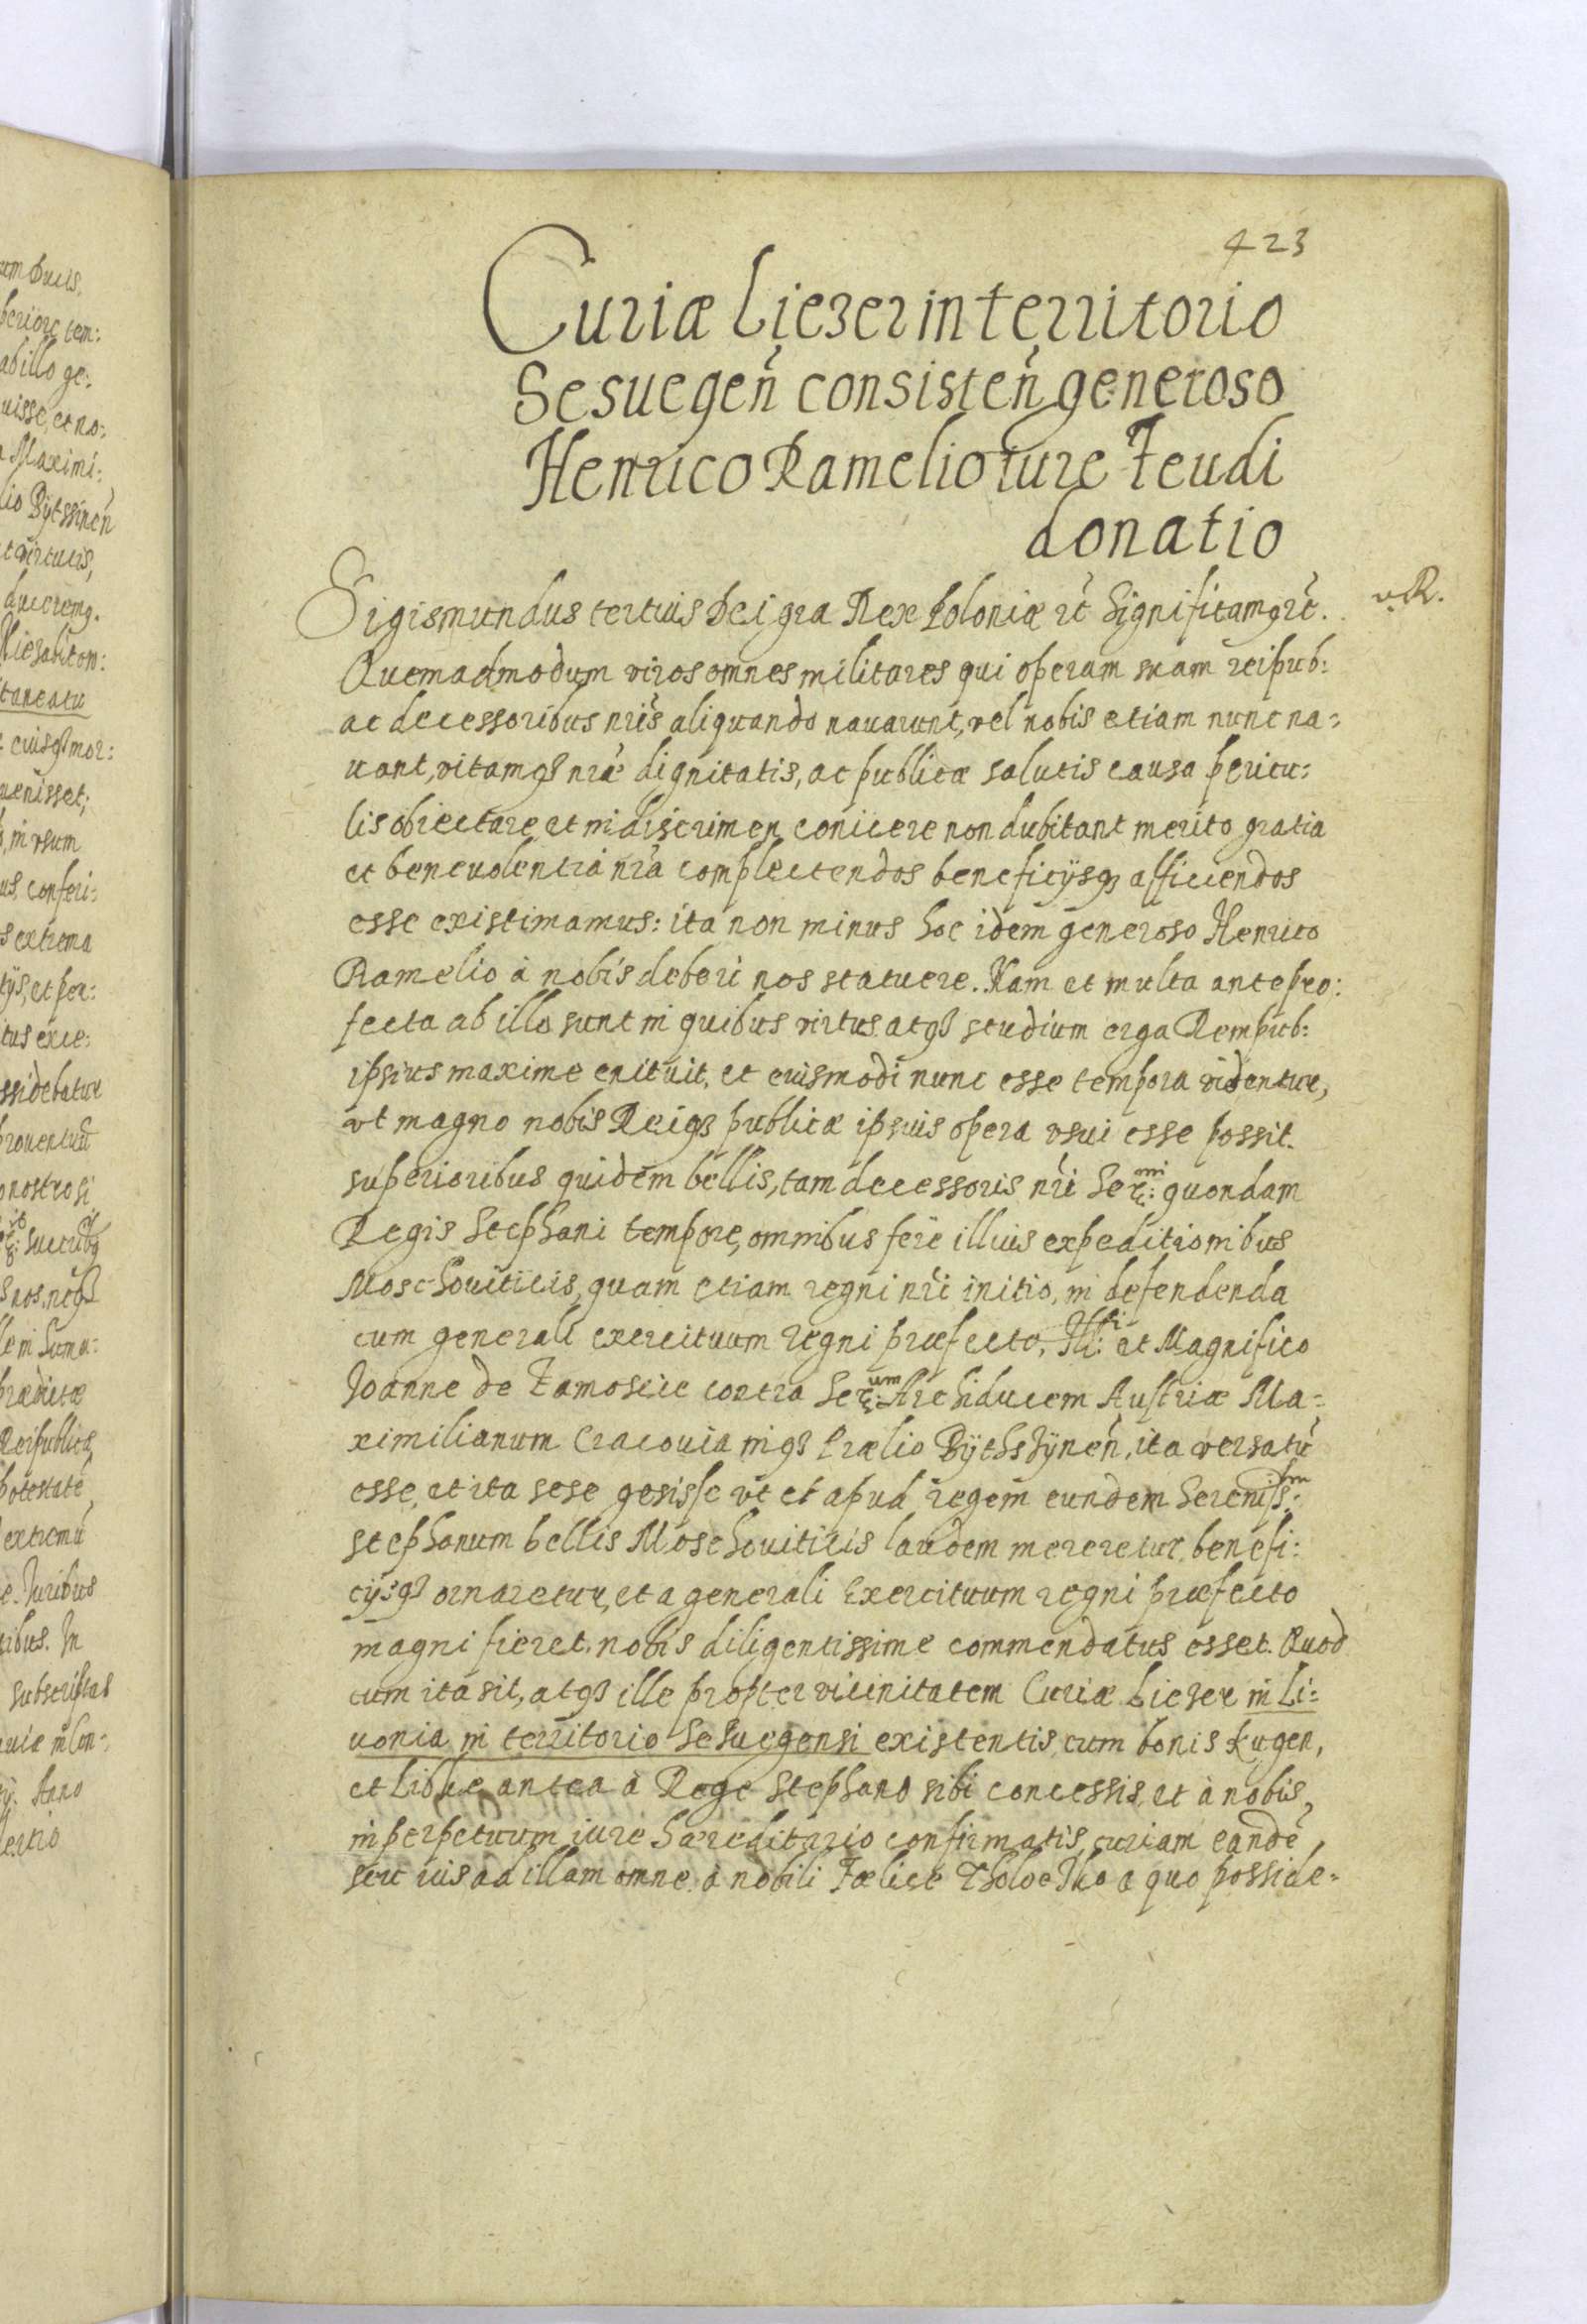 423
Curiæ Liezer in territorio
Sesuegen̄ consisten̄ generoso
Henrico Ramelio iure Feudi
donatio
Sigismundus tertius Dei gra Rex Poloniæ etc̃ Significamq etc̃.
Quemadmodum viros omnes militares qui operam suam reipub:
ac decessoribus nr̃is aliquando navarunt, vel nobis etiam nunc na=
uant, vitamq3 nræ dignitatis, ac publicæ salutis causa pericu=
lis obiectare, et in discrimen conicere non dubitant merito gratia
et beneuolentia nr̃a complectendos beneficijsq3 afficiendos
esse existimamus: ita non minus hoc idem generoso Henrico
Ramelio à nobis deberi nos statuere. Nam et multa ante pro:
fecta ab illo sunt in quibus virtus atq3 studium erga Rempub:
ipsius maxime enituit, et eiusmodi nunc esse tempora videntur,
vt magno nobis Reiq3 publicæ ipsius opera vsui esse possit.
superioribus quidem bellis, tam decessoris nr̃i Ser:mi quondam
Regis Stephani tempore, omnibus fere illius expeditionibus
Moschouiticis, quam etiam regni nr̃i initio, in defendenda
cum generali exercituum regni præfecto, Ill:ri et Magnifico
Joanne de Zamoscie contra Ser:um Archiducem Austriæ Ma=
ximilianum Cracouia inq3 Prælio Bÿthshÿnen̄, ita versatū
esse, et ita sese gesisse vt et apud regem eundem Sereniss:um
Stephanum bellis Moschouiticis laudem mereretur, benefi:
cijsq3 ornaretur, et a generali Exercituum regni præfecto
magni fieret, nobis diligentissime commendatus esset. Quod
cum ita sit, atq3 ille propter vicinitatem Curiæ Liezer in Li=
uonia in territorio Sesuegensi existentis, cum bonis Kugen,
et antea à Rege Stephano sibi concessis, et à nobis,
in perpetuum iure hæreditario confirmatis, curiam eandē
seu ius ad illam omne à nobili Fælice a quo posside=
v.R.